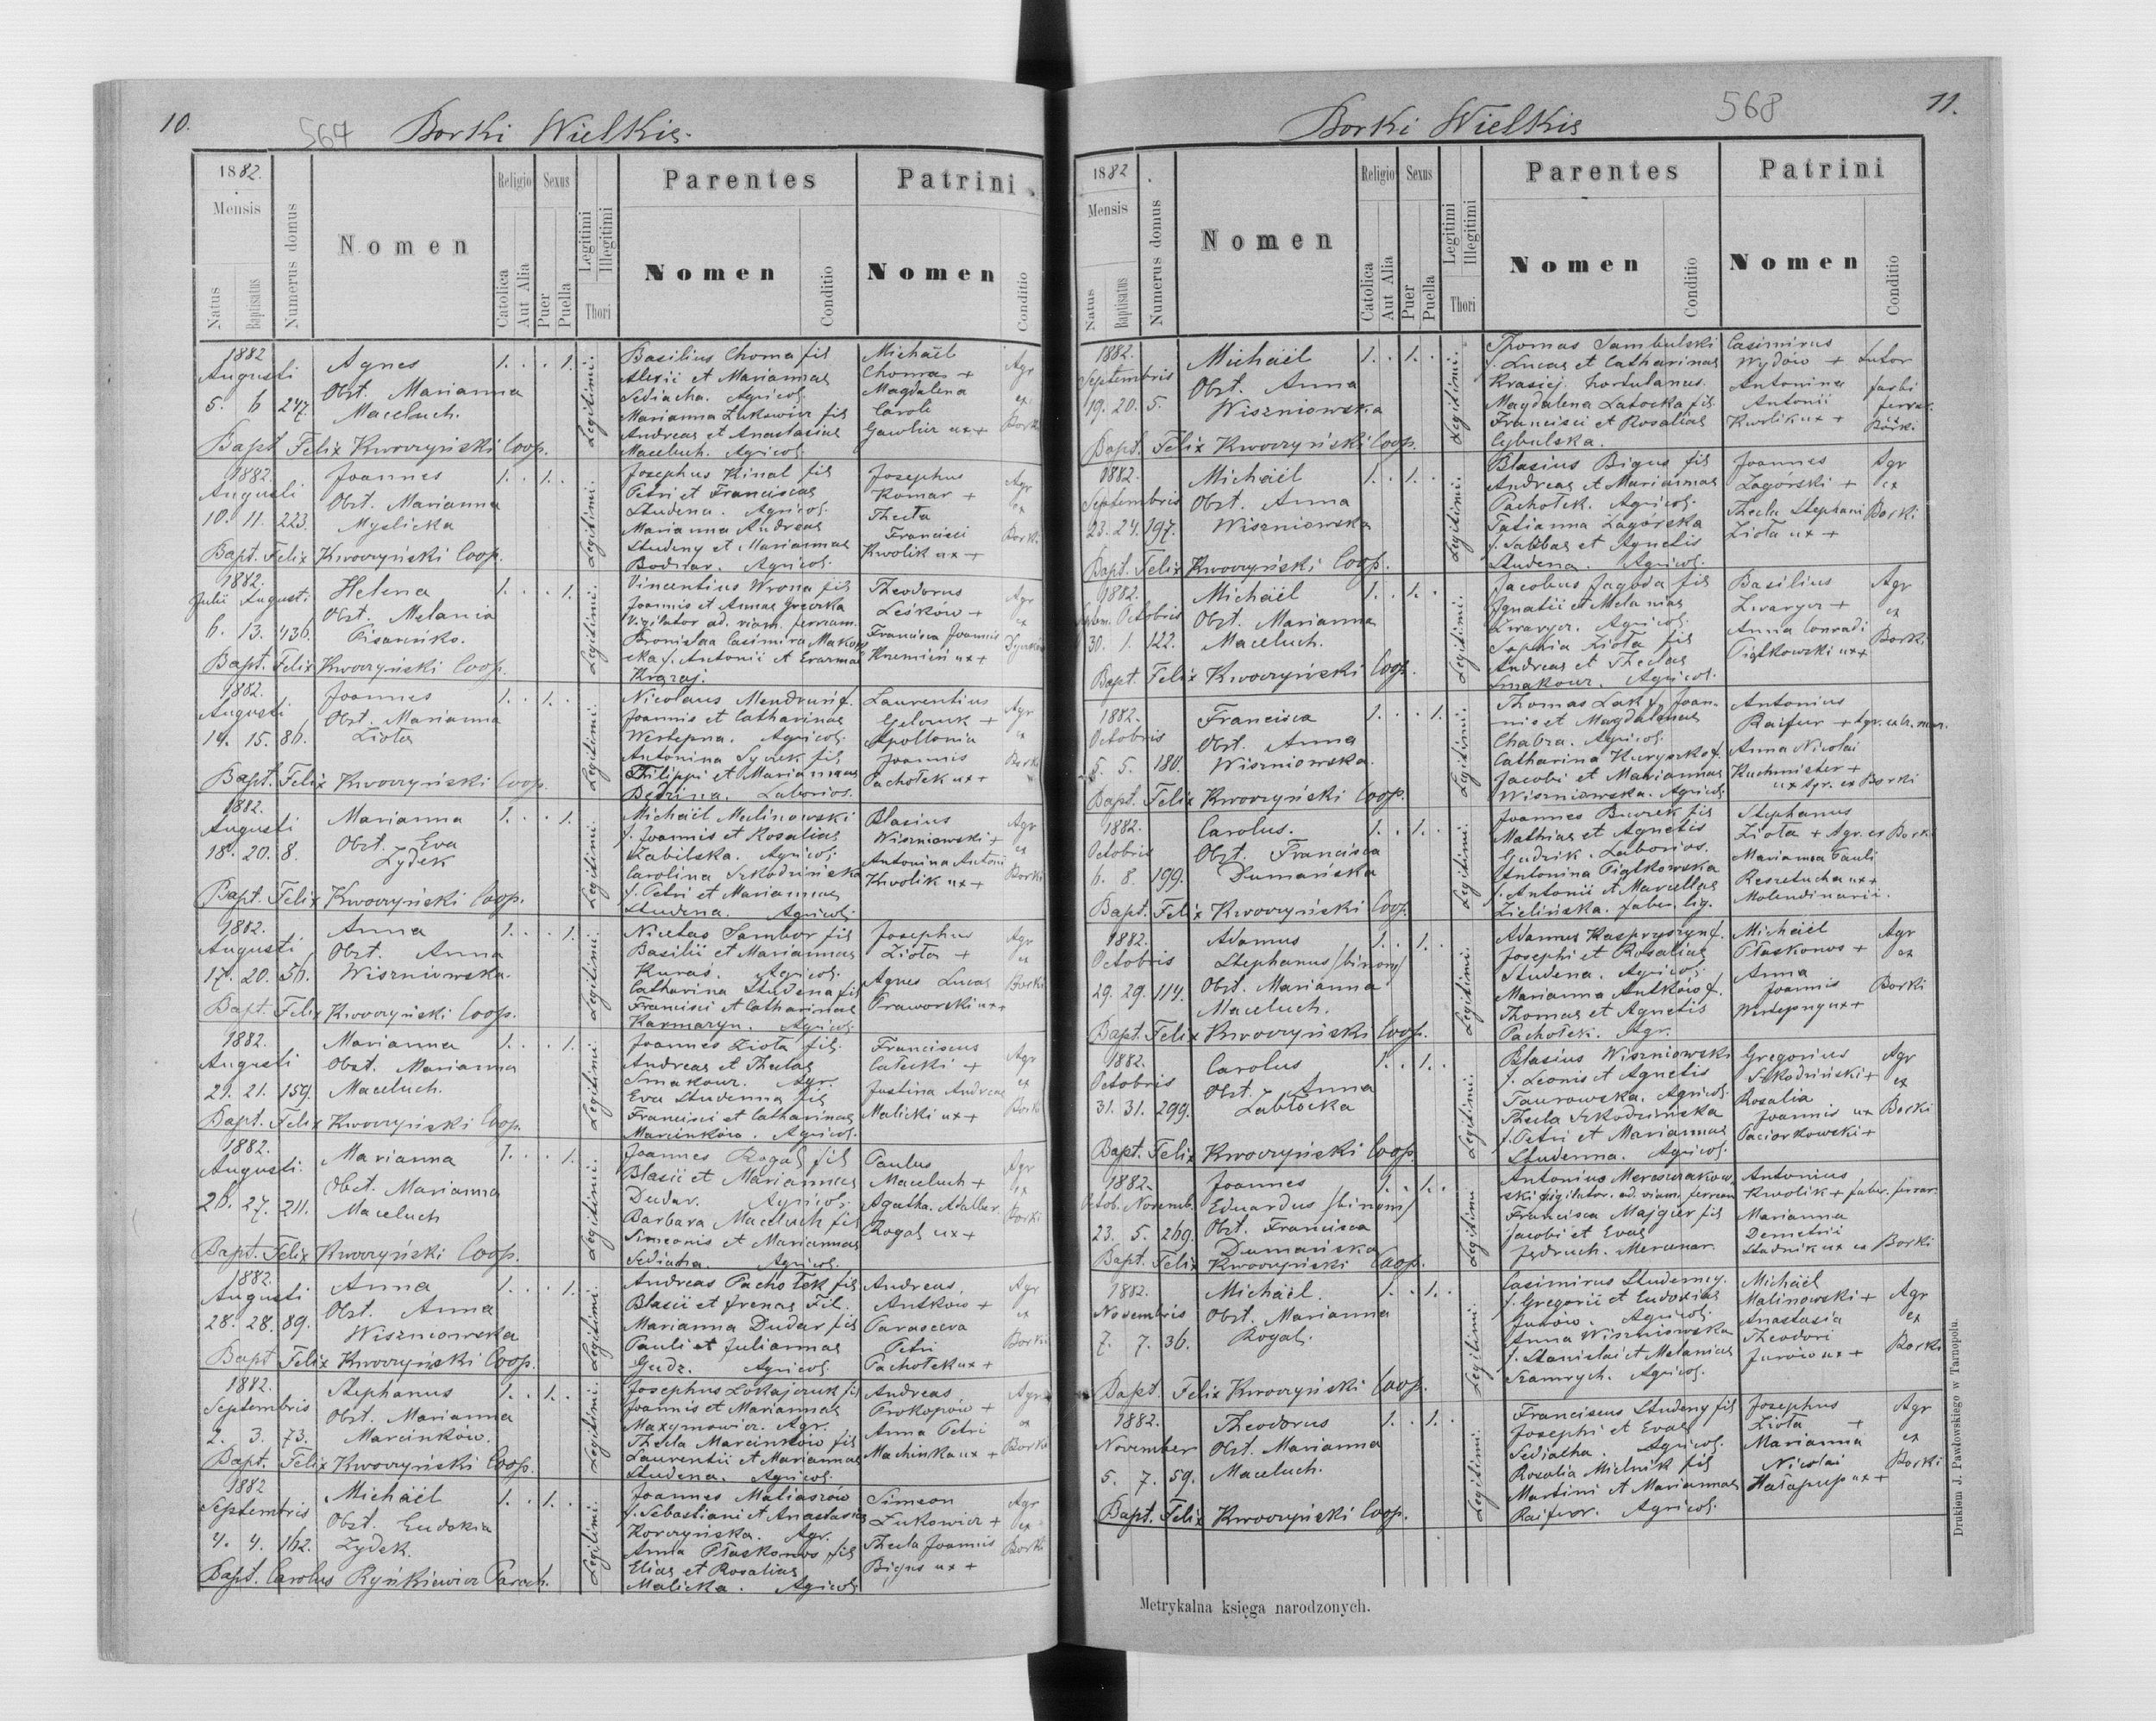 10.
564
Borki Wielkie.
1882.
Mensis
Natus
Baptisatus
Numerus domus
Nomen
Religio
Catolica
Aut Alia
Sexus
Puer
Puella
Legitimi
Illegitimi
Thori
Parentes
Nomen
Conditio
Patrini
Nomen
Conditio
1882
Augusti
5. 6 247.
Agnes
Obst. Marianna
Maceluch.
1. . . 1.
Legitimi.
Basilius Choma fil
Alexii et Mariannae
Sediacha. Agricol.
Marianna Lukewicz fil
Andreas et Anastasiae
Maceluch. Agricol
Michaël
Choma +
Magdalena
Caroli
Gawlicz ux +
Agr
ex
Borki
Bapt Felix Kwoczyński Coop.
1882.
Augusti
10. 11. 223.
Joannes
Obst. Marianna
Myslicka
1. . 1. .
Legitimi.
Josephus Kinal fil
Petri et Franciscae
Studena. Agricol.
Marianna Andreae
Studeny et Mariannae
Bodnar. Agricol.
Josephus
Komar +
Thecla
Francisci
Kwolik ux +
Agr
ex
Borki
Bapt. Felix Kwoczyński Coop.
1882.
Julii Augusti.
6. 13. 436.
Helena
Obst. Melania
Pisareńko.
1. . . 1.
Legitimi.
Vincentius Wrona fil
Joannis et Annae Greczka
Vigilator ad. viam. ferream.
Bronislaa Casimira Makow
cka f. Antonii et Erazmae
Kraraj.
Theodorus
Leśków +
Francisca Joannis
Kremień ux +
Agr
ex
Bapt. Felix Kwoczyński Coop.
1882.
Augusti
14. 15. 86.
Joannes
Obst. Marianna
Ziota
1. . 1. .
Legitimi.
Nicolaus Mendruń f.
Joannis et Catharinae
Westepna. Agricol.
Antonina Syczek fil
Philippi et Mariannae
Bedrina. Laborios.
Laurentius
Gelczuk +
Apollonia
Joannis
Pachołek ux +
Agr
ex
Borki
Bapt. Felix Kwoczyński Coop.
1882.
Augusti
18. 20. 8.
Marianna
Obst. Eva
Zydek
1. . . 1.
Legitimi.
Michaël Malinowski
f. Joannis et Rosaliae
Zabilska. Agricol.
Carolina Szkodzińska
f. Petri et Mariannae
Studena. Agricol.
Blasius
Wiszniowski +
Antonina Antoni
Kwolik ux +
Agr
ex
Borki
Bapt. Felix Kwoczyński Coop.
1882.
Augusti
17. 20. 56.
Anna
Obst. Anna
Wiszniowska.
1. . . 1.
Legitimi.
Nicetas Sambor fil
Basilii et Mariannae
Kuras. Agricol.
Catharina Studena fil
Francisci et Catharinae
Karmazyn. Agricol.
Josephus
Ziota +
Agnes Lucae
Praworski ux +
Agr
ex
Borki
Bapt. Felix Kwoczyński Coop.
1882.
Augusti
21. 21. 159.
Marianna
Obst. Marianna
Maceluch.
1. . . 1.
Legitimi.
Joannes Ziota fil.
Andreae et Theclae
Smakouz. Agr.
Eva Studenna fil
Francisci et Catharinae
Marcinków. Agricol.
Franciscus
Całecki +
Justina Andreae
Malicki ux +
Agr
ex
Borki
Bapt. Felix Kwoczyński Coop.
1882.
Augusti.
26. 27. 211.
Marianna
Obst. Marianna
Maceluch
1. . . 1.
Legitimi.
Joannes Rogal fil
Blasii et Mariannae
Dudar. Agricol.
Barbara Maceluch fil
Simeonis et Mariannae
Sediacha. Agricol.
Paulus
Maceluch +
Agatha Adalber.
Rogal ux +
Agr
ex
Borki
Bapt. Felix Kwoczyński Coop.
1882.
Augusti
28. 28. 89.
Anna
Obst. Anna
Wiszniowska
1. . . 1.
Legitimi.
Andreas Pachołek fil
Blasii et Irenae Fil.
Marianna Dudar fil
Pauli et Juliannae
Gudz. Agricol.
Andreas
Antków +
Parasceva
Petri
Pachołek ux +
Agr
ex
Borki
Bapt Felix Kwoczyński Coop.
1882.
Septembris
2. 3. 73.
Stephanus
Obst. Marianna
Marcinków.
1. . 1. .
Legitimi.
Josephus Lokajczuk fil
Joannis et Mariannae
Maxymowicz. Agr.
Thecla Marcinków fil
Laurentii et Mariannae
Studena. Agricol.
Andreas
Prokopów +
Anna Petri
Machinka ux +
Agr
ex
Borki
Bapt. Felix Kwoczyński Coop.
1882
Septembris
4. 4. 162.
Michaël
Obst. Eudokia
Zydek.
1. . 1. .
Legitimi.
Joannes Matiaszów
f. Sebastiani et Anastasiae
Korczyńska. Agr.
Anna Płaskonos fil
Eliae et Rosaliae
Malicka. Agricol
Simeon
Lukowicz +
Thecla Joannis
Bigus ux +
Agr
ex
Borki
Bapt. Carolus Ryńkiewicz Paroch.
11.
568
Borki Wielkie
1882
Mensis
Natus
Baptisatus
Numerus domus
Nomen
Religio
Catolica
Aut Alia
Sexus
Puer
Puella
Legitimi
Illegitimi
Thori
Parentes
Nomen
Conditio
Patrini
Nomen
Conditio
1882.
Septembris
19. 20. 5.
Michaël
Obst. Anna
Wiszniowska
1. . 1. .
Legitimi.
Thomas Sambulski
f. Lucae et Catharinae
Krasiej. hortulanus.
Magdalena Latocka fil.
Francisci et Rosaliae
Cybulska.
Casimirus
Wydów +
Antonina
Antonii
Kwolik ux +
sutor
fabri
ferrar.
Borki
Bapt. Felix Kwoczyński Coop.
1882.
Septembris
23. 24. 197.
Michaël
Obst. Anna
Wiszniowska
1. . 1. .
Legitimi.
Blasius Bigus fil
Andreae et Mariannae
Pachołek. Agricol.
Tatianna Zagórska
f. Sabbae et Agnetis
Studena. Agricol.
Joannes
Zagorski +
Thecla Stephani
Ziota ux +
Agr
ex
Borki
Bapt. Felix Kwoczyński Coop.
1882.
Septbm. Octobris
30. 1. 122.
Michaël
Obst. Marianna
Maceluch.
1. . 1. .
Legitimi.
Jacobus Jagoda fil
Ignatii et Melaniae
Zwarycz. Agricol.
Sophia Ziota fil
Andreae et Theclae
Smakouz. Agricol.
Basilius
Zwarycz +
Anna Conradi
Piątkowski ux +
Agr
ex
Borki
Bapt. Felix Kwoczyński Coop.
1882.
Octobris
5. 5. 180.
Francisca
Obst. Anna
Wiszniowska.
1. . . 1.
Legitimi.
Thomas Lak f. Joan-
nis et Magdalenae
Chabra. Agricol.
Catharina Kuryszko f.
Jacobi et Mariannae
Wiszniowska. Agricol.
Antonius
Raifur + Agr.
Anna Nicolai
Kuchmister +
ux Agr. ex Borki
Bapt. Felix Kwoczyński Coop.
1882.
Octobris
6. 8. 199.
Carolus.
Obst. Francisca
Dumańska
1. . 1. .
Legitimi.
Joannes Burek fil
Mathiae et Agnetis
Gudzik. Laborios.
Antonina Piątkowska
f. Antonii et Marcellae
Zielińska. faber. lig.
Stephanus
Ziota + Agr. ex Borki
Marianna Pauli
Reszetucha ux +
Molendinarii.
Bapt. Felix Kwoczyński Coop.
1882.
Octobris
29. 29. 114.
Adamus
Stephanus /binom/
Obst. Marianna
Maceluch.
1. . 1. .
Legitimi.
Adamus Kaspryszyn f.
Josephi et Rosaliae
Studena. Agricol.
Marianna Antków f.
Thomae et Agnetis
Pachołek. Agr.
Michaël
Płaskonos +
Anna
Joannis
Westepny ux +
Agr
ex
Borki
Bapt. Felix Kwoczyński Coop.
1882.
Octobris
31. 31. 299.
Carolus
Obst. Anna
Zabłocka
1. . 1. .
Legitimi.
Blasius Wiszniowski
f. Leonis et Agnetis
Taurowska. Agricol.
Thecla Szkodzińska
f. Petri et Mariannae
Studenna. Agricol.
Gregorius
Szkodziński +
Rosalia
Joannis ux
Paciorkowski +
Agr
ex
Borki
Bapt. Felix Kwoczyński Coop.
1882.
Octob. Novemb.
23. 5. 269.
Joannes
Eduardus /binom/
Obst. Francisca
Dumańska
1. . 1. .
Legitimi
Antonius Meraczakow
ski vigilator. ad. viam. ferream
Francisca Majgier fil
Jacobi et Evae
Jędruch. Mercenar.
Antonius
Kwolik + faber. ferrar.
Marianna
Demetrii
Studnik ux ex Borki
Bapt. Felix Kwoczyński Coop.
1882.
Novembris
7. 7. 36.
Michaël.
Obst. Marianna
Rogal.
1. . 1. .
Legitimi.
Casimirus Studenny.
f. Gregorii et Eudoxiae
Jurów. Agricol.
Anna Wiszniowska
f. Stanislai et Melaniae
Szamrych. Agricol.
Michaël
Malinowski +
Anastasia
Theodori
Jurów ux +
Agr
ex
Borki
Bapt. Felix Kwoczyński Coop.
1882.
November
5. 7. 59.
Theodorus
Obst. Marianna
Maceluch.
1. . 1. .
Legitimi.
Franciscus Studeny fil
Josephi et Evae
Sediatha. Agricol.
Rozalia Mielnik fil
Martini et Mariannae
Raifur. Agricol.
Josephus
Ziota +
Marianna
Nicolai
Hałapup ux +
Agr
ex
Borki
Bapt. Felix Kwoczyński Coop.
Metrykalna księga narodzonych.
Drukiem J. Pawłowskiego w Tarnopolu.